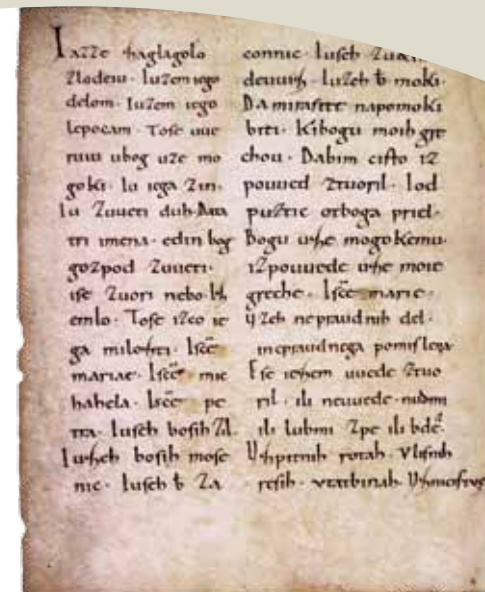 Iazze zaglagolo
zlodeiu. Iuzem iego
delom. Iuzem iego
lepocam. Tose uue
ruiu ubog uze mo
goki. Iu iega zin.
Iu zuueti duh. Data
tri imena. edin bog
gozpod zuueti.
ise zuori nebo. Iz
emlo. Tose izco ie
ga milozti. Iscē
mariae. Iscē mic
hahela. Iscē pe
tra. Iuseh bosih zil.
Iuzeh bosih mose
nic. Iuseh b̄ za
connic. Iuseh
deuuiz. Iuzeh b̄ moki.
Da mirasite napomoki
biti. Kibogu moih gre
chou. Dabim cisto iz
pouued ztuoril. Iod
puztic otboga priel.
Bogu uze mogokemu.
izpouuede uze moie
greche. Iscē marie.
uzeh nepraudnih del.
inepraudnega pomislena
Ese iezem uuede ztuo
ril. ili neuuede. nudmi
ili lubmi zpe ili bde.
Uzpitnih rotah. Vlisnih
resih. vtatbinah.